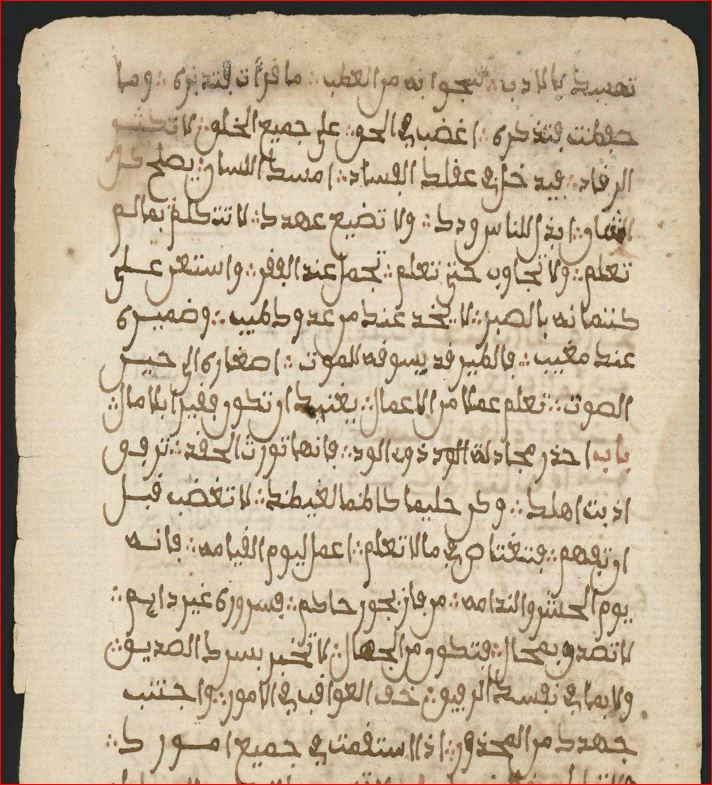 نفسك بالادب ؞ تنجوا به من العطب ؞ ما قرات فتدبرى ؞ وما
حفظت فتذكرى ؞ اغضب في الحق ؞ على جميع الخلق ؞ لا تكثر
الرقاد ؞ فيدخل في عقلك الفساد ؞ امسك اللسان ؞ يصلح لك
الشان ؞ ابذل للناس ودك ؞ ولا تضيع عهدك ؞ لا تتكلم بمالم
تعلم ؞ ولا تجاوب حتى تعلم ؞ تجمل عند الفقر ؞ واستعن على
كتمانه بالصبر ؞ لا يخف عنك من عدوك طيبه ؞ وضميرى
عند مغيب ؞ فالطير قد يسوقه للموت ؞ اصغارى الى حس
الصوت ؞ تعلم عملا من الاعمال ؞ يغنيك ان تكون فقيرا بلا مال ؞
باب احذر مجادلة الود ذوى الود ؞ فانها تورث الحقد ؞ ترفق
اذ بت اهلك ؞ وكن حليما كاظما لغيظك ؞ لا تغضب قبل
ان تفهم ؞ فتغتاض في ما لا تعلم ؞ اعمل ليوم القيامه ؞ فانه
يوم الحشر والندامه ؞ من فاز بجور حاكم ؞ فسرورى غير دايم ؞
لا تصدق بمحال ؞ فتكون من الجهال ؞ لا تخبر بسرك الصديق ؞
ولا بما في نفسك الرفيق ؞ خف العواقب في الامور ؞ واجتنب
جهدك من المحذور ؞ اذا استقمت في جميع امورك ؞